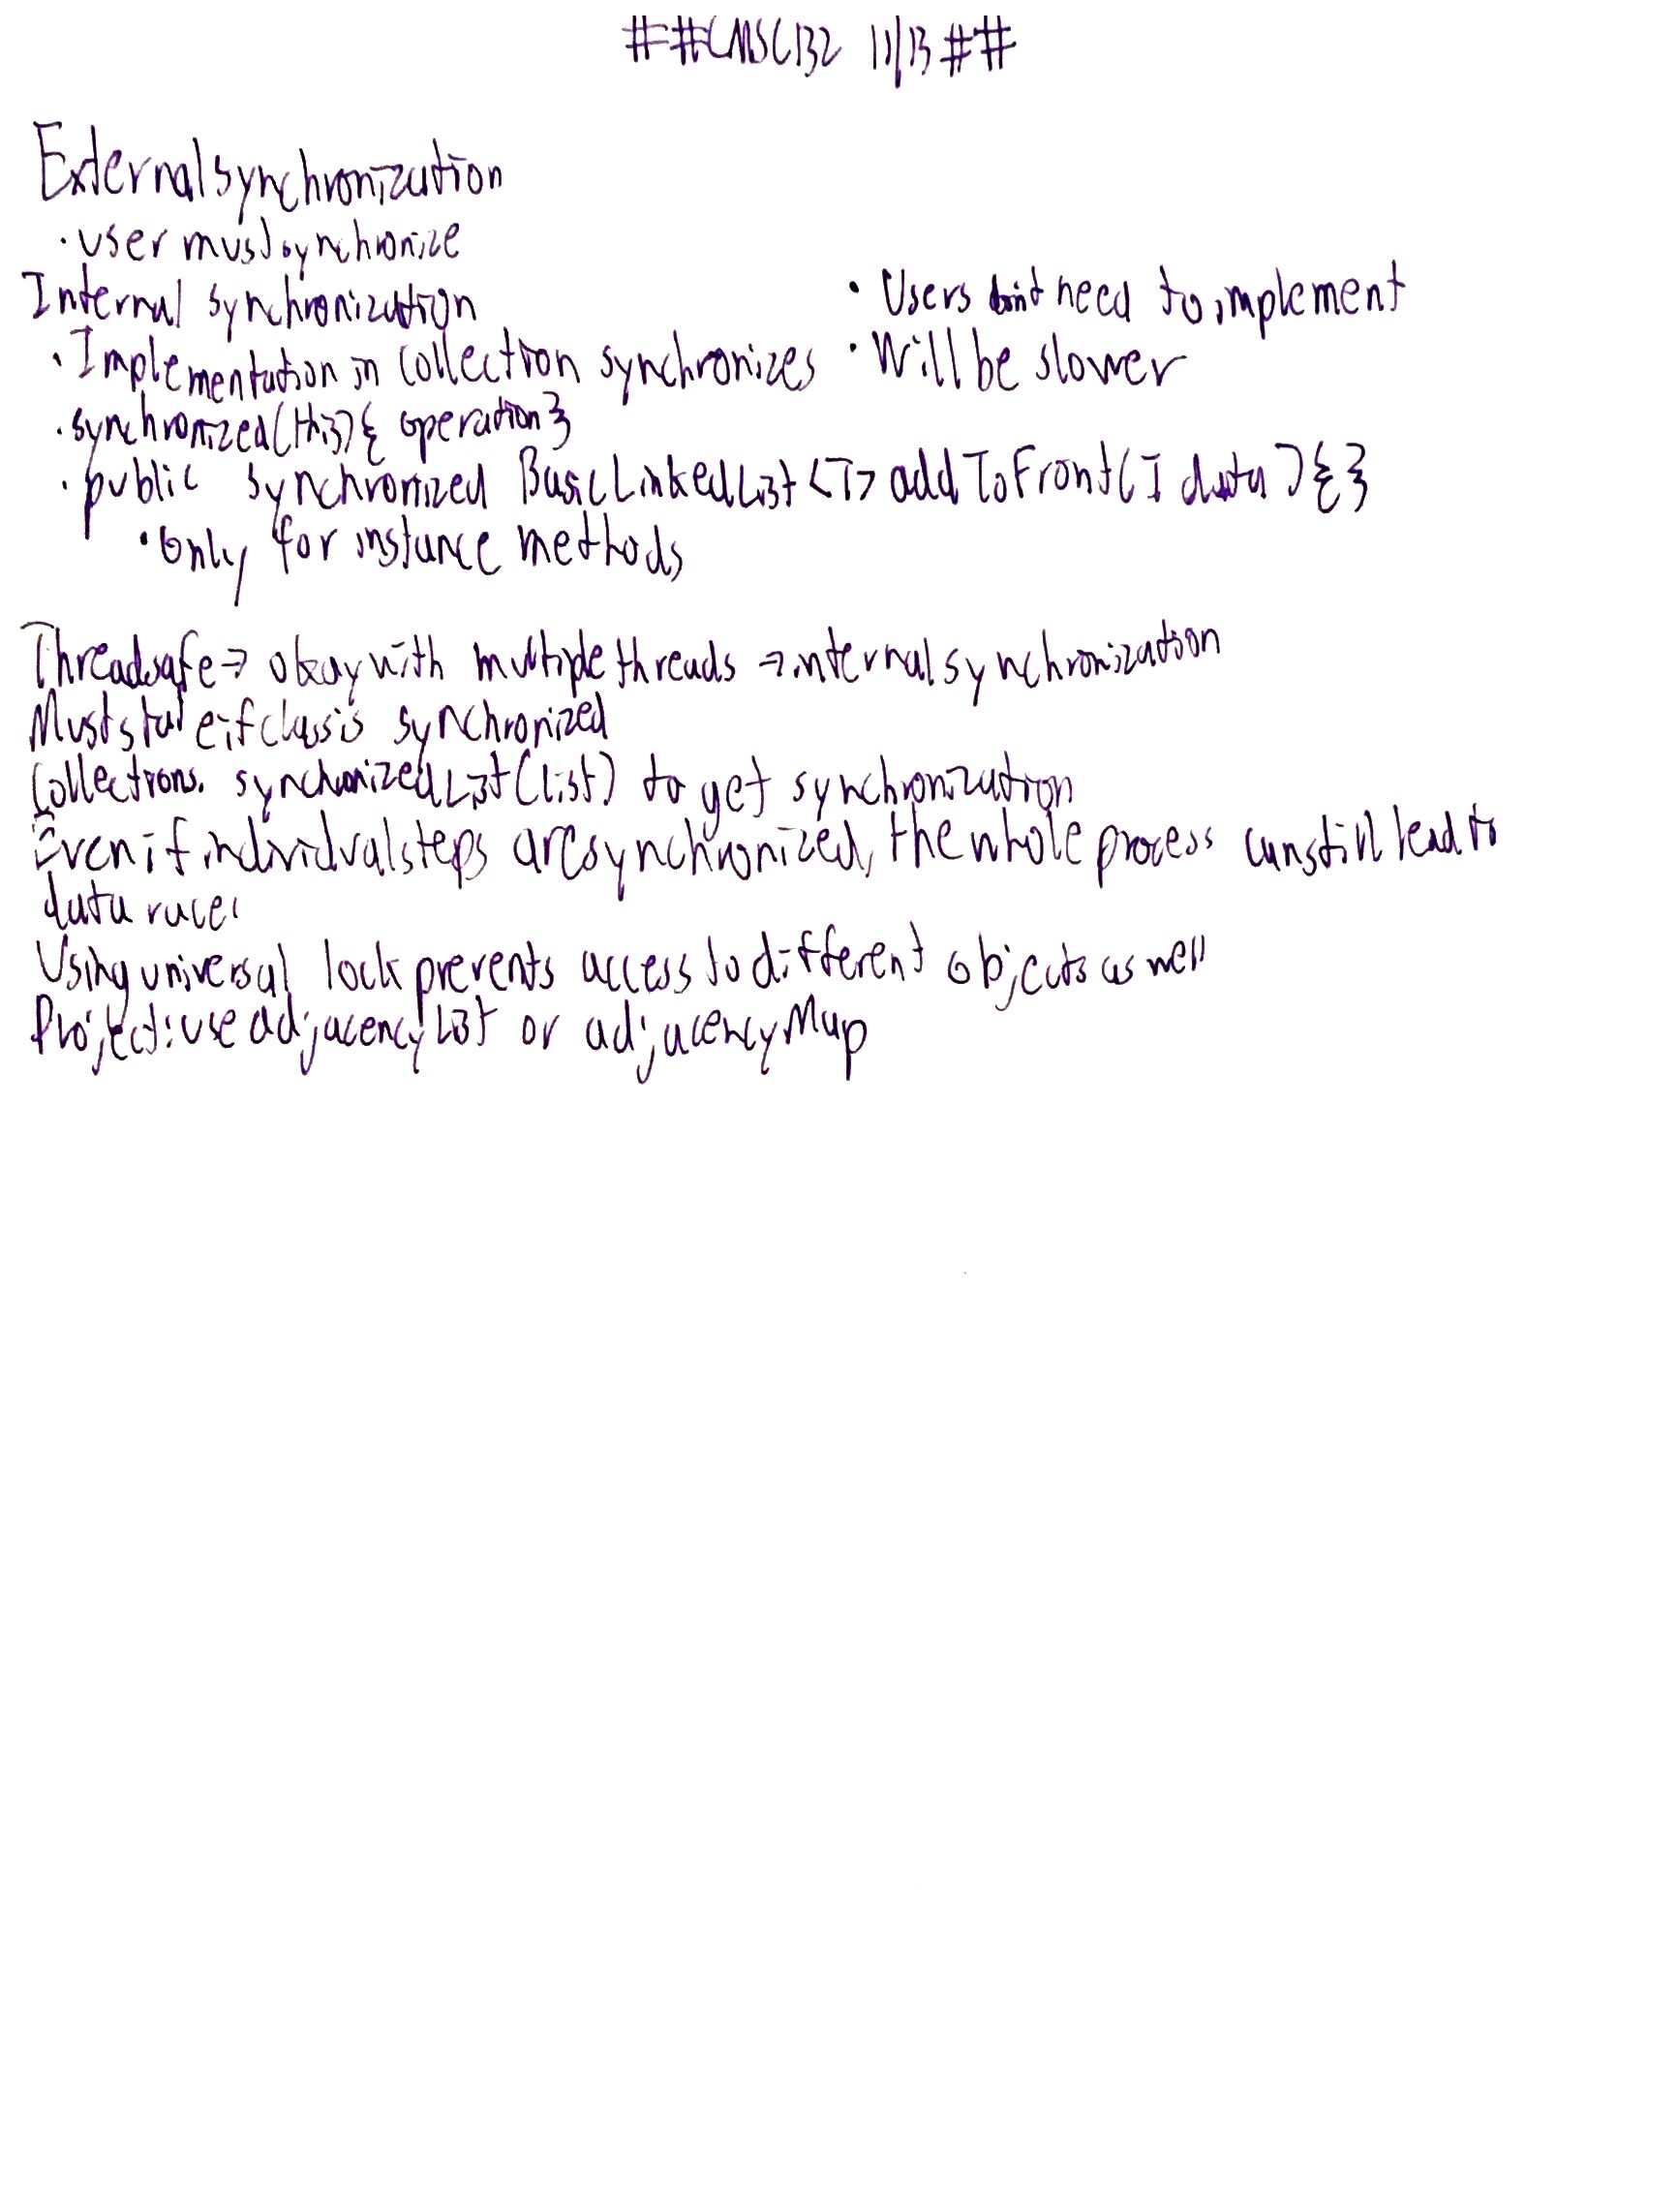 ##CMSC132 11/13##
External synchronization
· user must synchronize
Internal synchronization
· Implementation in collection synchronizes
· synchronized(this){ operation}
· public synchronized BasicLinkedList<T> addToFront(T data){}
· Only for instance methods
· Users don't need to implement
· Will be slower
Threadsafe => okay with multiple threads => internal synchronization
Must state if class is synchronized
Collections.synchronizedList(list) to get synchronization
Even if individual steps are synchronized, the whole process can still lead to
data races
Using universal lock prevents access to different objects as well
Project: use adjacency List or adjacency Map